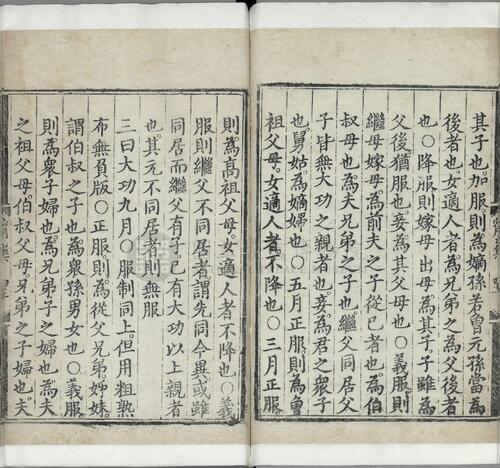 其子也加服則爲嫡孫若曾元孫當爲
後者也女適人者爲兄弟之爲父後者
也○降服則嫁母出母爲其子子雖爲
父後猶服也妾爲其父母也○義服則
繼母嫁母爲前夫之子從己者也爲伯
叔母也爲夫兄弟之子也繼父同居父
子皆無大功之親者也妾爲君之衆子
也舅姑爲嫡婦也○五月正服則爲曾
祖父母女適人者不降也○三月正服
則爲高祖父母女適人者不降也○義
服則繼父不同居者謂先同今異或雖
同居而繼父有子已有大功以上親者
也其元不同居者則無服
三曰大功九月○服制同上但用粗熟
布無負版○正服則爲從父兄弟姊妹
謂伯叔之子也爲衆孫男女也○義服
則爲衆子婦也爲兄弟子之婦也爲夫
之祖父母伯叔父母兄弟之子婦也夫